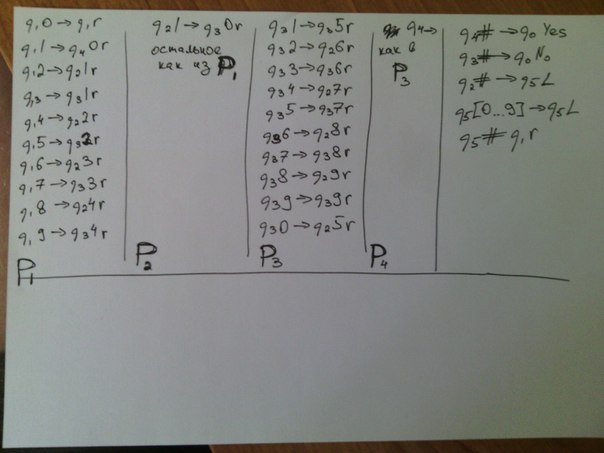 q₁0→q₁r
q₁1→q₄0r
q₁2→q₂1r
q₁3→q₃1r
q₁4→q₂2r
q₁5→q₃2r
q₁6→q₂3r
q₁7→q₃3r
q₁8→q₂4r
q₁9→q₃4r
P₁
q₂1→q₃0r
остальное
как из P₁
P₂
q₃1→q₃5r
q₃2→q₂6r
q₃3→q₃6r
q₃4→q₂7r
q₃5→q₃7r
q₃6→q₂8r
q₃7→q₃8r
q₃8→q₂9r
q₃9→q₃9r
q₃0→q₂5r
P₃
q₄→
как в
P₃
P₄
q₄#→q₀ Yes
q₃#→q₀ No
q₂#→q₅L
q₅[0...9]→q₅L
q₅# q₁r